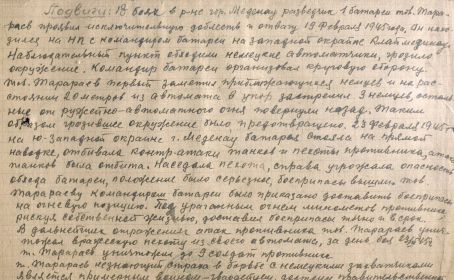 Подвиги: В боях в р-не гор. Меденау разведчик 1 батареи тов. Тара-
раев проявил исключительную доблесть и отвагу 19 февраля 1945 года, он нахо-
дился на НП с командиром батареи на западной окраине
Наблюдательный пункт обходили немецкие автоматчики, грозило
окружение. Командир батареи организовал круговую оборону
тов. Тарараев первый заметил приближающихся немцев и на рас-
стоянии 20 метров из автомата в упор застрелил 3 немцев, осталь-
ные от ружейно-автоматного огня повернули назад. Таким
образом грозившее окружение было предотвращено. 23 февраля 1945 г
на Ю-Западной окраине г. Меденау батарея стояла на прямой
наводке, отбивала контратаки танков и пехоты противника, атака
танков была отбита. Наседала пехота, справа угрожала опасность
обхода батареи, положение было серьезное, боеприпасы вышли. тов.
Тарараеву командиром батареи было приказано доставить боеприпасы
на огневую позицию. Под ураганным огнем минометов противника
рискуя собственной жизнью, доставил боеприпасы точно в срок.
В дальнейших отражениях атак противника тов. Тарараев унич-
тожал вражескую пехоту из своего автомата, за день боя
т. Тарараев уничтожил до 9 солдат противника.
т. Тарараев незнающий страха в борьбе с немецкими захватчиками
является примерным достоин правительственной